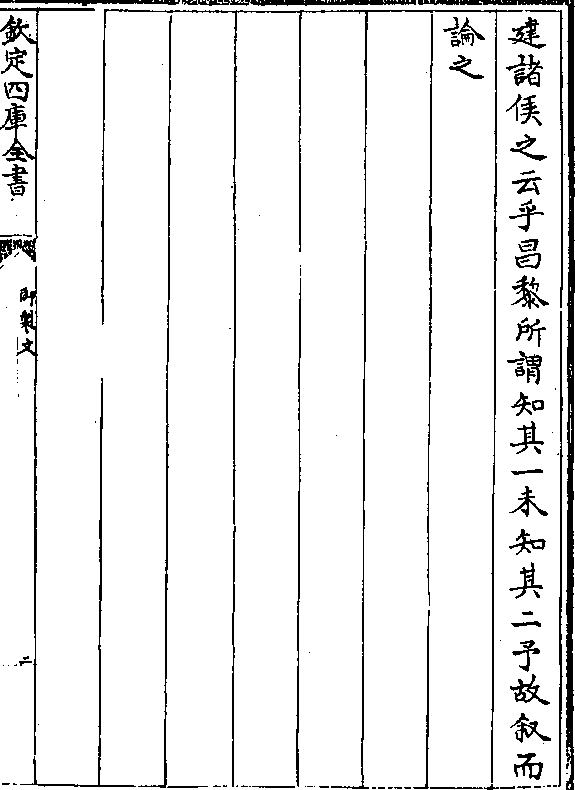 建諸侯之云乎昌黎所謂知其一未知其二予故叙而
論之
欽定四庫全書
御製文
二